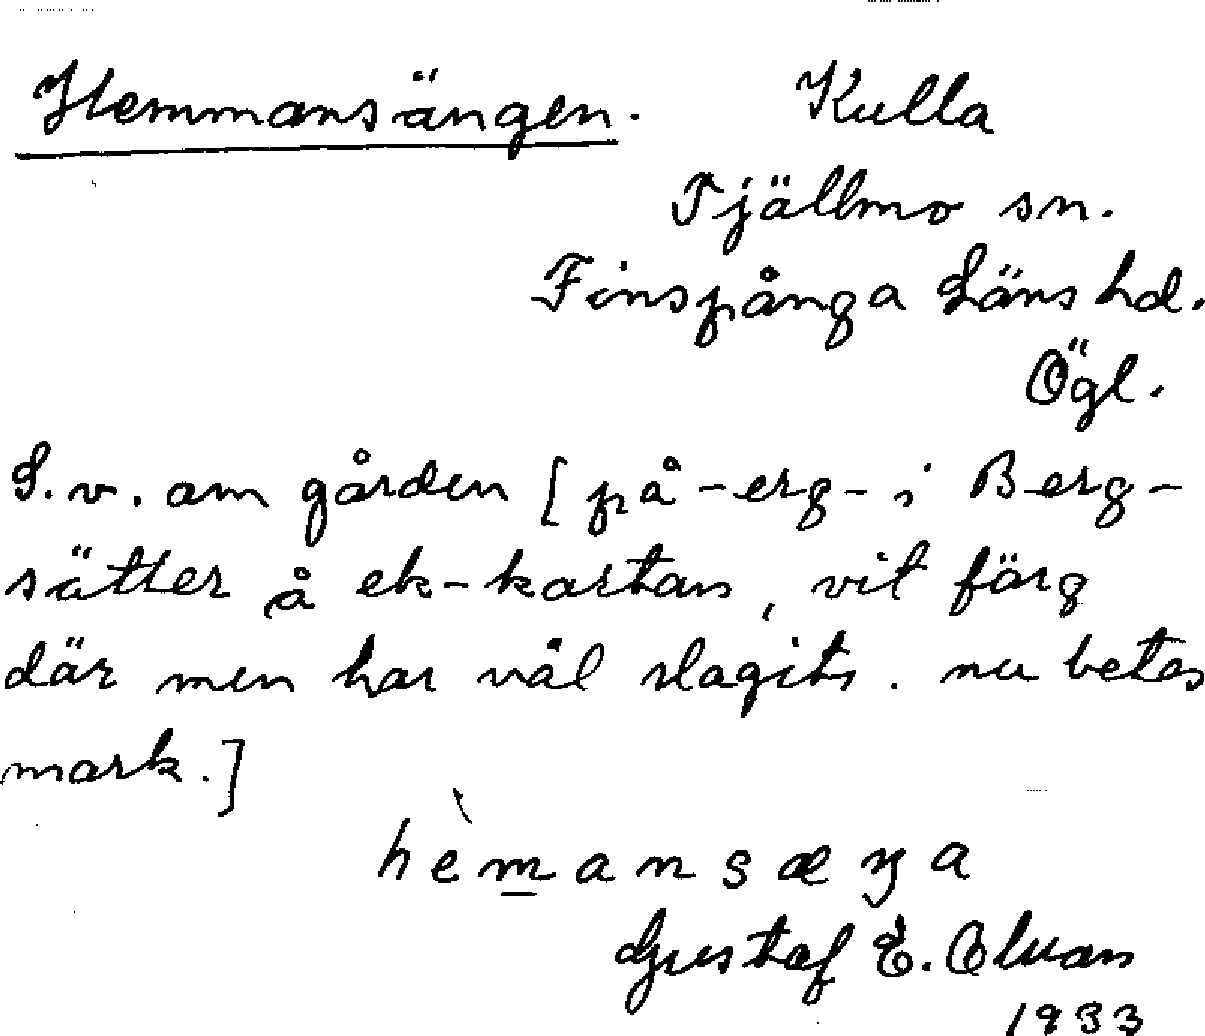 Hemmansängen. Kulla
Tjällmo sn.
Finspånga Läns hd.
Ögl.
S.v. om gården [på -erg- i Berg-
sätter å ek-kartan, vit färg
där men har väl slagits. nu betes
mark.]
hèmansæŋa
Gustaf E. Olvan
1933